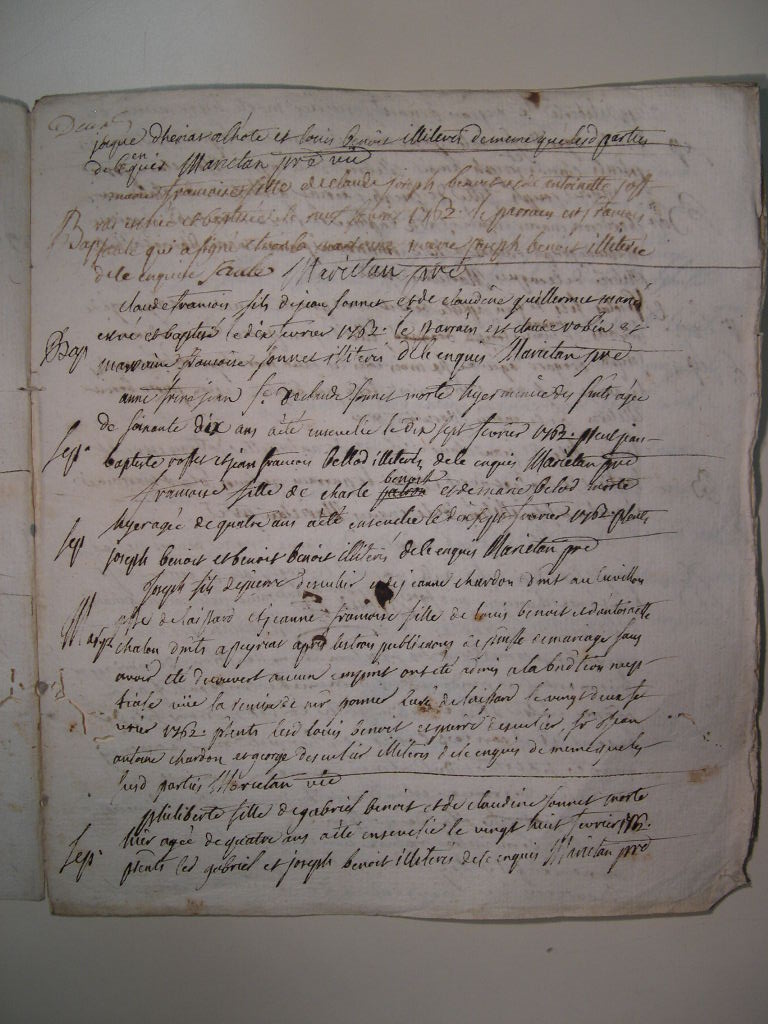 jacque dherias alhote et louis benoit illiterés de meme que lesd parties
de ce enquis Marietan pre vic
marie francoise fille de claude joseph benoit et de antoinette
est née et baptisée le neuf fevrier 1762. le parrain est francois
Bap qui a signé et la marraine marie joseph benoit illiterée
de ce enquise Marietan pre
claude francois fils de jean sonnet et de claudine guillermet mariés
est né et baptisé le dix fevrier 1762. le parrain est claude robin et
Bap marraine francoise sonnet illiterés de ce enquis Marietan pre
anne fe de claude sonnet morte hyer munie des sts agée
de soixante dix ans a été ensevelie le dix sept fevrier 1762. pnt jean
Sep. baptiste rosset et jean francois bellod illiterés de ce enquis Marietan pre
francoise fille de charle benoit et de marie belod morte
hyer agée de quatre ans a été ensevelie le dix sept fevrier 1762 pnts
Sep joseph benoit et benoit benoit illiterés de ce enquis Marietan pre
Joseph fils de pierre descullier et de jeanne chardon dnt au
Mariage de laissard et jeanne francoise fille de louis benoit et dantoinette
chalon dnts a peyriat apres les trois publications de de mariage sans
avoir été decouvert aucun empnt ont été admis a la bndtion nup
tiale vüe la remise de mr curé de laissard le vingt deux fe
vrier 1762. pnts lesd louis benoit et pierre descullier jean
antoine chardon et george descullier illiterés de ce enquis de meme que les
susd parties Marietan vic
philiberte fille de gabriel benoit et de claudine sonnet morte
hier agée de quatre ans a été ensevelie le vingt huit fevrier 1762.
Sep. pnts led gabriel et joseph benoit illiterés de ce enquis Marietan pre